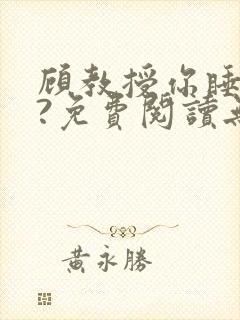 顾教授你睡
?免費閱讀無
黃永勝